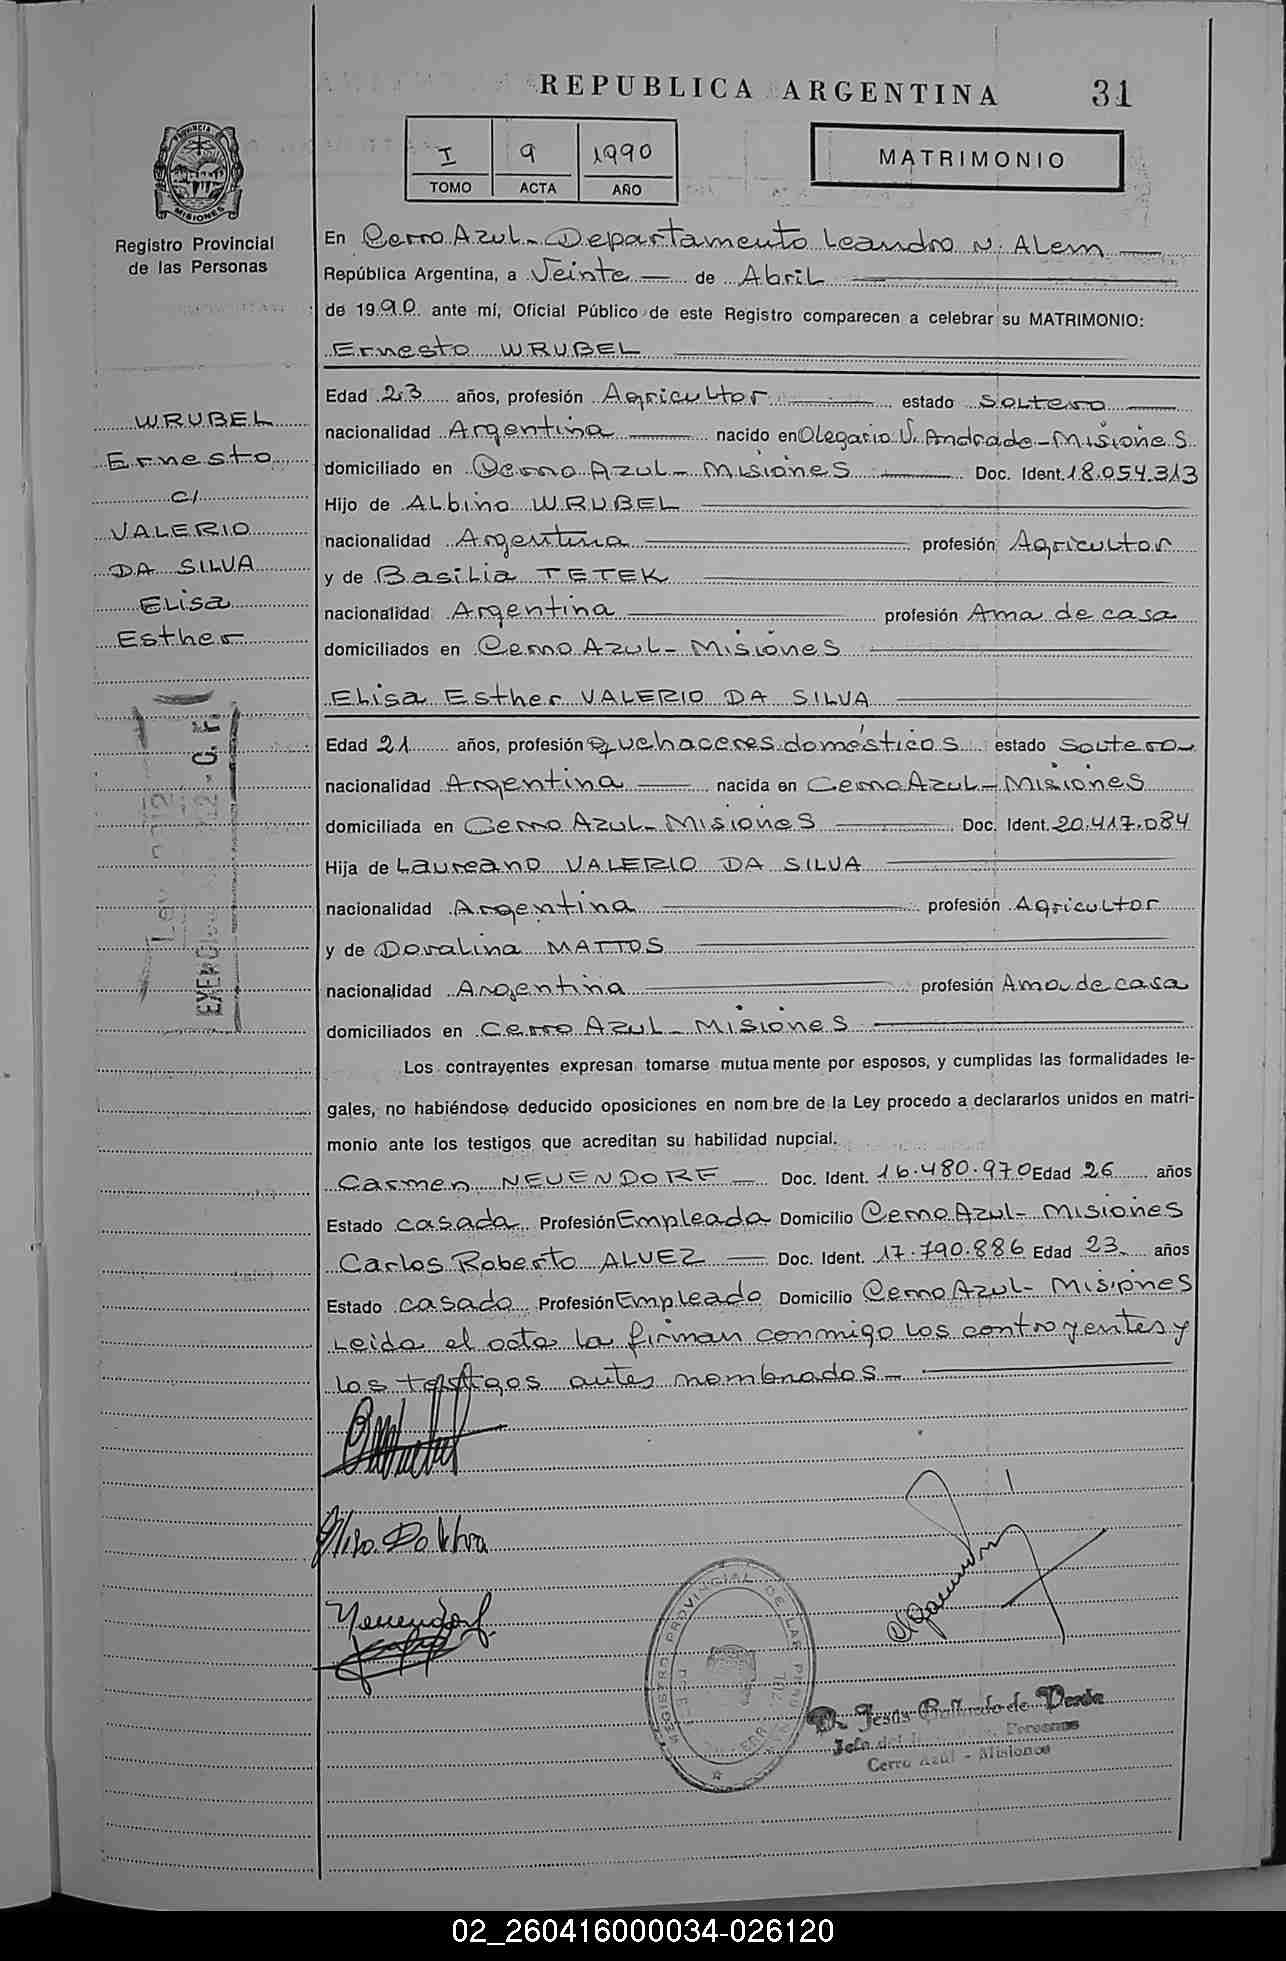 REPUBLICA ARGENTINA 31
PROVINCIA DE
MISIONES
Registro Provincial
de las Personas
I 9 1990
TOMO ACTA AÑO
MATRIMONIO
En Cerro Azul - Departamento Leandro N. Alem
República Argentina, a Veinte de Abril
de 1990 ante mí, Oficial Público de este Registro comparecen a celebrar su MATRIMONIO:
Ernesto WRUBEL
Edad 23 años, profesión Agricultor estado soltero
nacionalidad Argentina nacido en Olegario V. Andrade - Misiones
domiciliado en Cerro Azul - Misiones Doc. Ident. 18.054.313
Hijo de Albino WRUBEL
nacionalidad Argentina profesión Agricultor
y de Basilia TETEK
nacionalidad Argentina profesión Ama de casa
domiciliados en Cerro Azul - Misiones
WRUBEL
Ernesto
c/
VALERIO
DA SILVA
Elisa
Esther
Elisa Esther VALERIO DA SILVA
Edad 21 años, profesión Quehaceres domésticos estado soltera
nacionalidad Argentina nacida en Cerro Azul - Misiones
domiciliada en Cerro Azul - Misiones Doc. Ident. 20.417.084
Hija de Laureano VALERIO DA SILVA
nacionalidad Argentina profesión Agricultor
y de Doralina MATTOS
nacionalidad Argentina profesión Ama de casa
domiciliados en Cerro Azul - Misiones
Ley
Los contrayentes expresan tomarse mutuamente por esposos, y cumplidas las formalidades le-
gales, no habiéndose deducido oposiciones en nombre de la Ley procedo a declararlos unidos en matri-
monio ante los testigos que acreditan su habilidad nupcial.
Carmen NEUENDORF Doc. Ident. 16.480.970 Edad 26 años
Estado casada Profesión Empleada Domicilio Cerro Azul - Misiones
Carlos Roberto ALVEZ Doc. Ident. 17.790.886 Edad 23 años
Estado casado Profesión Empleado Domicilio Cerro Azul - Misiones
Leida el acta la firman conmigo los contrayentes y
los testigos antes nombrados -
Elisa Da Silva
Neuendorf
REGISTRO PROVINCIAL DE LAS
Jesús Gallardo de
Jefe del Personas
Cerro Azul - Misiones
02_260416000034-026120